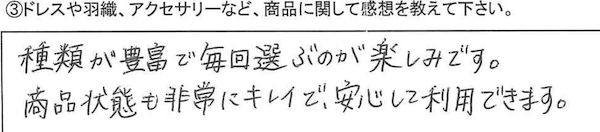 ③ドレスや羽織、アクセサリーなど、商品に関して感想を教えて下さい。
種類が豊富で毎回選ぶのが楽しみです。
商品状態も非常にキレイで、安心して利用できます。